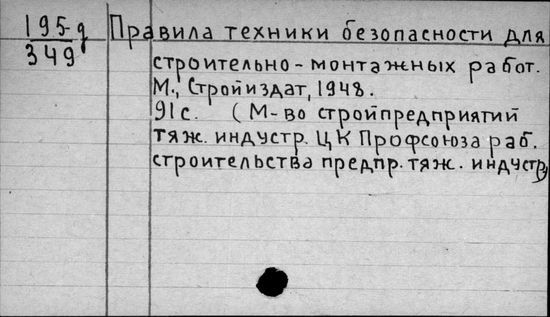 195-д
349
Правила техники безопасности для
строительно-монтажных работ.
М., Стройиздат, 1948.
91с. (М-во стройпредприятий
тяж. индустр. ЦК Профсоюза раб.
строительства предпр. тяж. индустр)